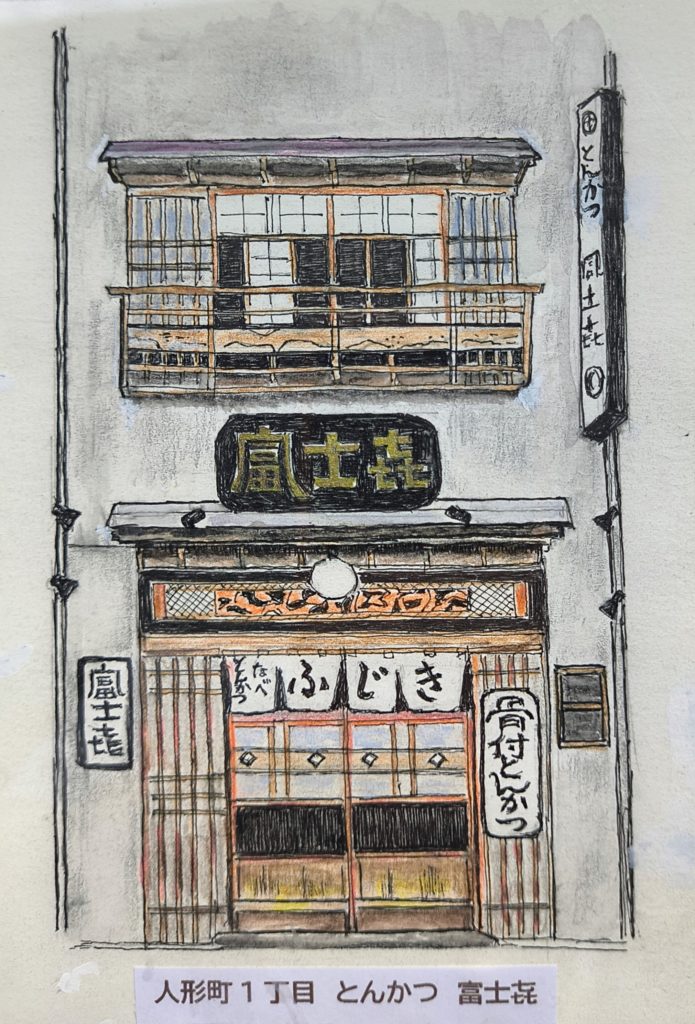 とんかつ 富士㐂
富士㐂
なべ
とんかつ
ふじき
富士㐂
骨付とんかつ
人形町1丁目 とんかつ 富士㐂